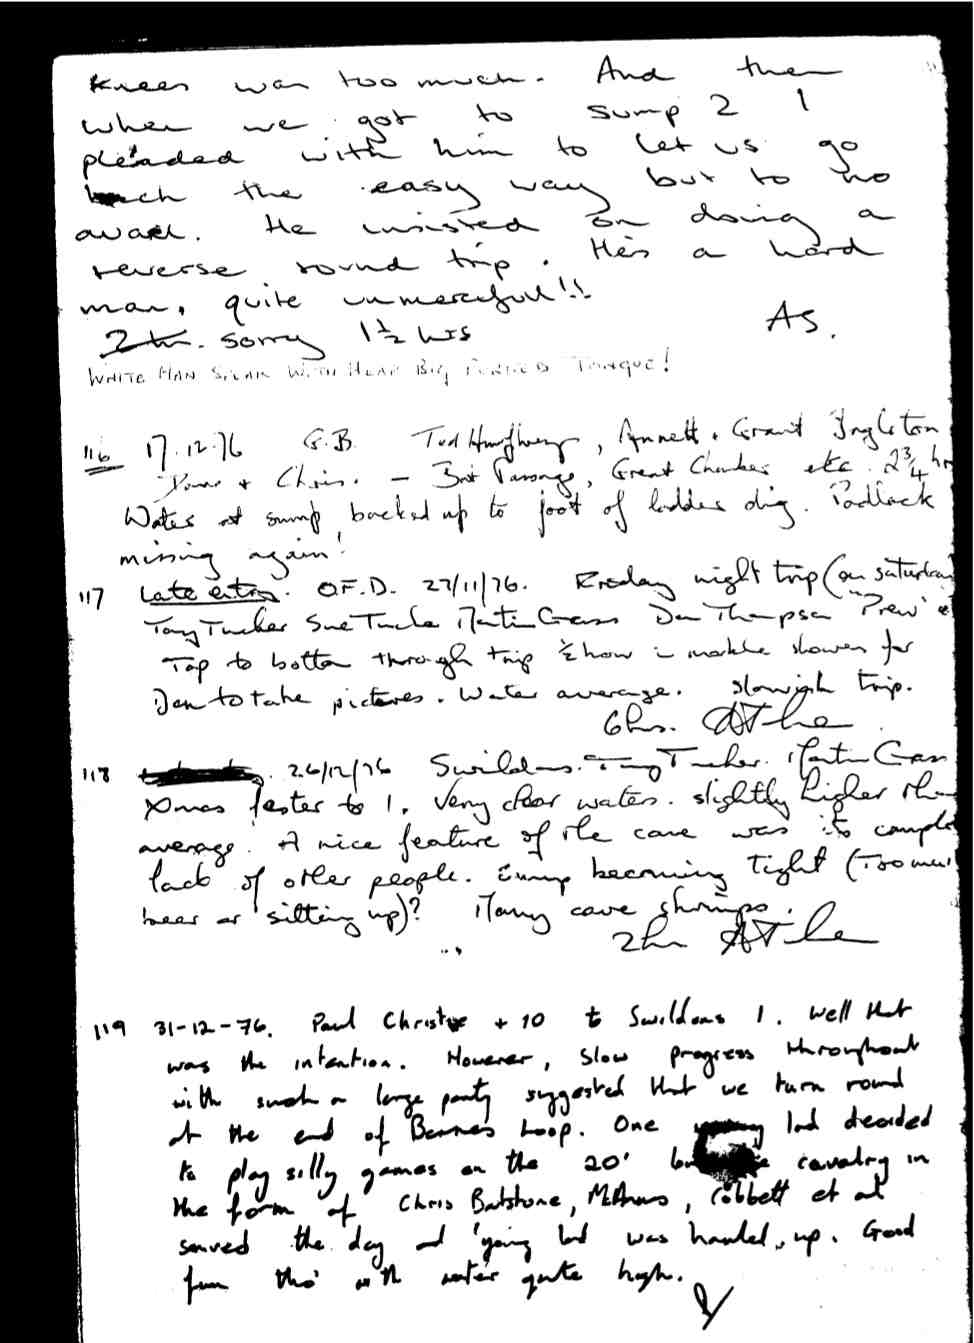 knees was too much. And then
when we got to sump 2 I
pleaded with him to let us go
back the easy way but to no
avail. He insisted on doing a
reverse round trip. He's a hard
man, quite unmerciful!!
2 hr. sorry 1½ hrs AS.
WHITE MAN SPEAK WITH HEAP BIG FORKED TONGUE!
116 17.12.76 G.B. Ted Humphreys, Annett + Grant Ingleton
+ Chris. - Bat Passage, Great Chamber etc. 2¾ hr
Water at sump backed up to foot of ladder dig. Padlock
missing again!
117 Late entry. O.F.D. 27/11/76. Friday night trip (on saturday
Tony Tucker Sue Tucker Martin Grass Dan Thompson "Prew" e
Top to bottom through trip ½ hour in marble shower for
Dan to take pictures. Water average. Slowish trip.
6hrs.
118 26/12/76 Swildons. Tony Tucker. Martin Grass
Xmas fester to 1. Very clear water. slightly higher than
average. A nice feature of the cave was its comple
lack of other people. Sump becoming tight (Too muc
beer or 'sitting up)? Many cave shrimps.
2hr
119 31-12-76. Paul Christie + 10 to Swildons 1. Well that
was the intention. However, slow progress throughout
with such a large party suggested that we turn round
at the end of Barnes Loop. One young lad decided
to play silly games on the 20' but the cavalry in
the form of Chris Batstone, McAnus, Cobbett et al
saved the day and 'young lad was hauled up. Good
fun tho' with water quite high.